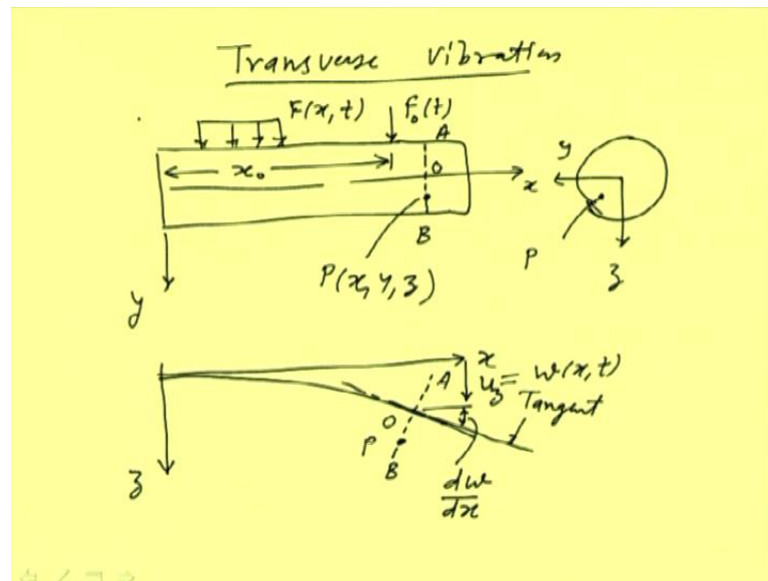 Transverse vibration
F(x,t) F₀(t)
A
x₀ O x
B
y
P(x,y,z)
y
P
z
x
A
u_z = w(x,t)
Tangent
O
P
B
z
dw
dx